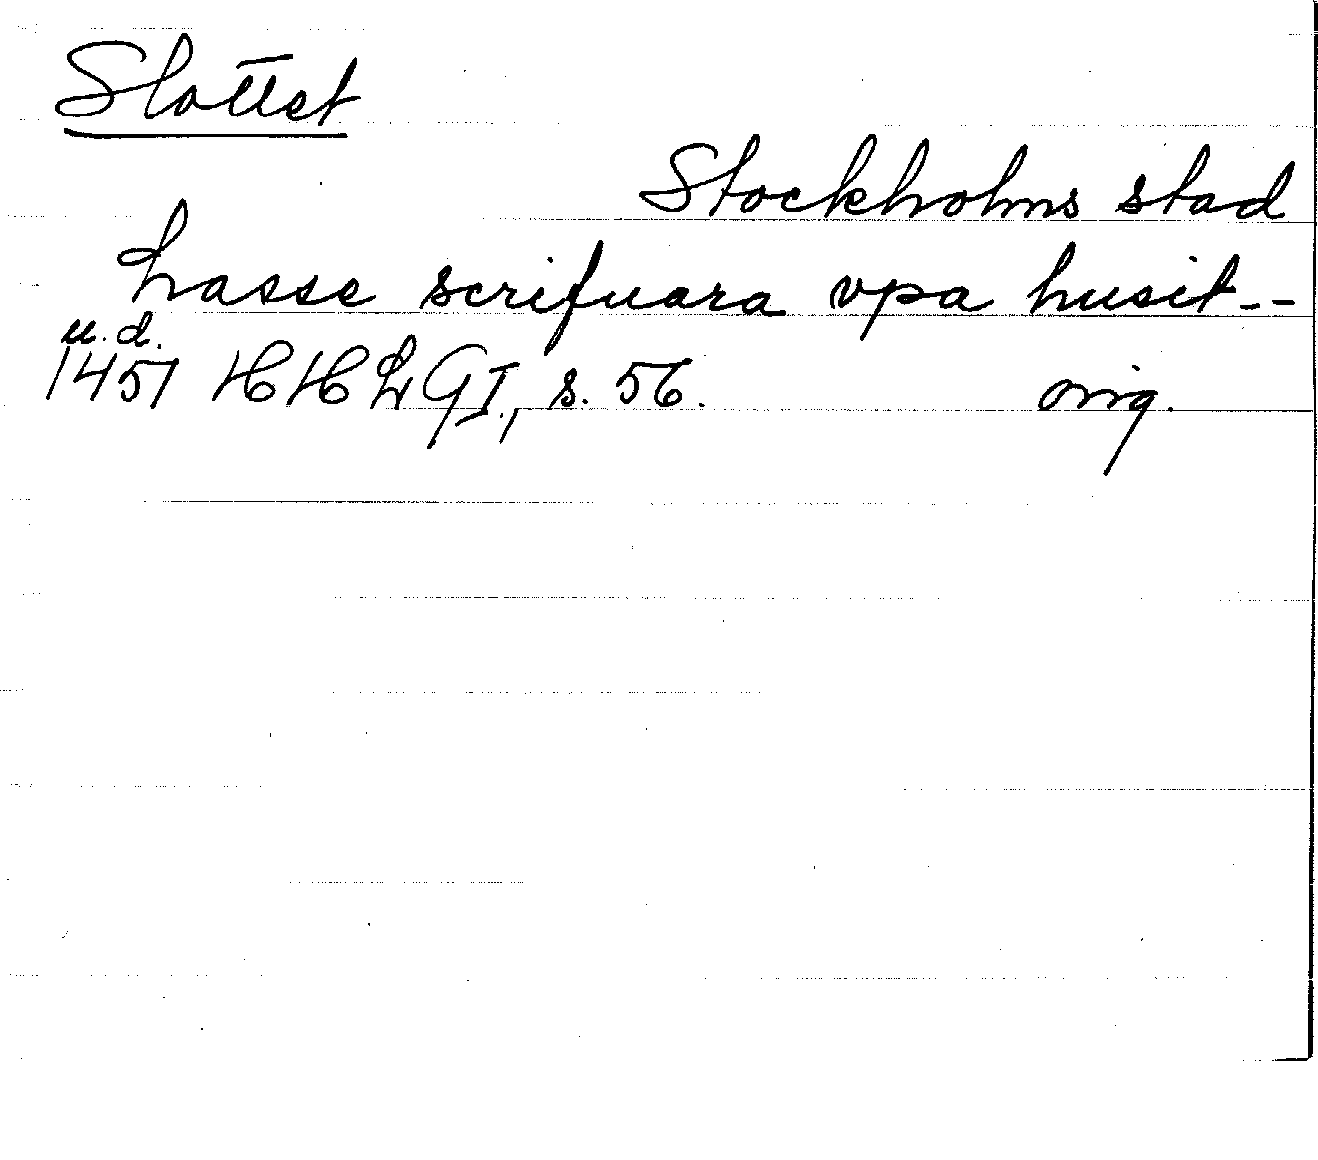 Slottet
Stockholms stad
Lasse scrifuara vpa husit--
u.d.
1451 HHLGI, s. 56. orig.